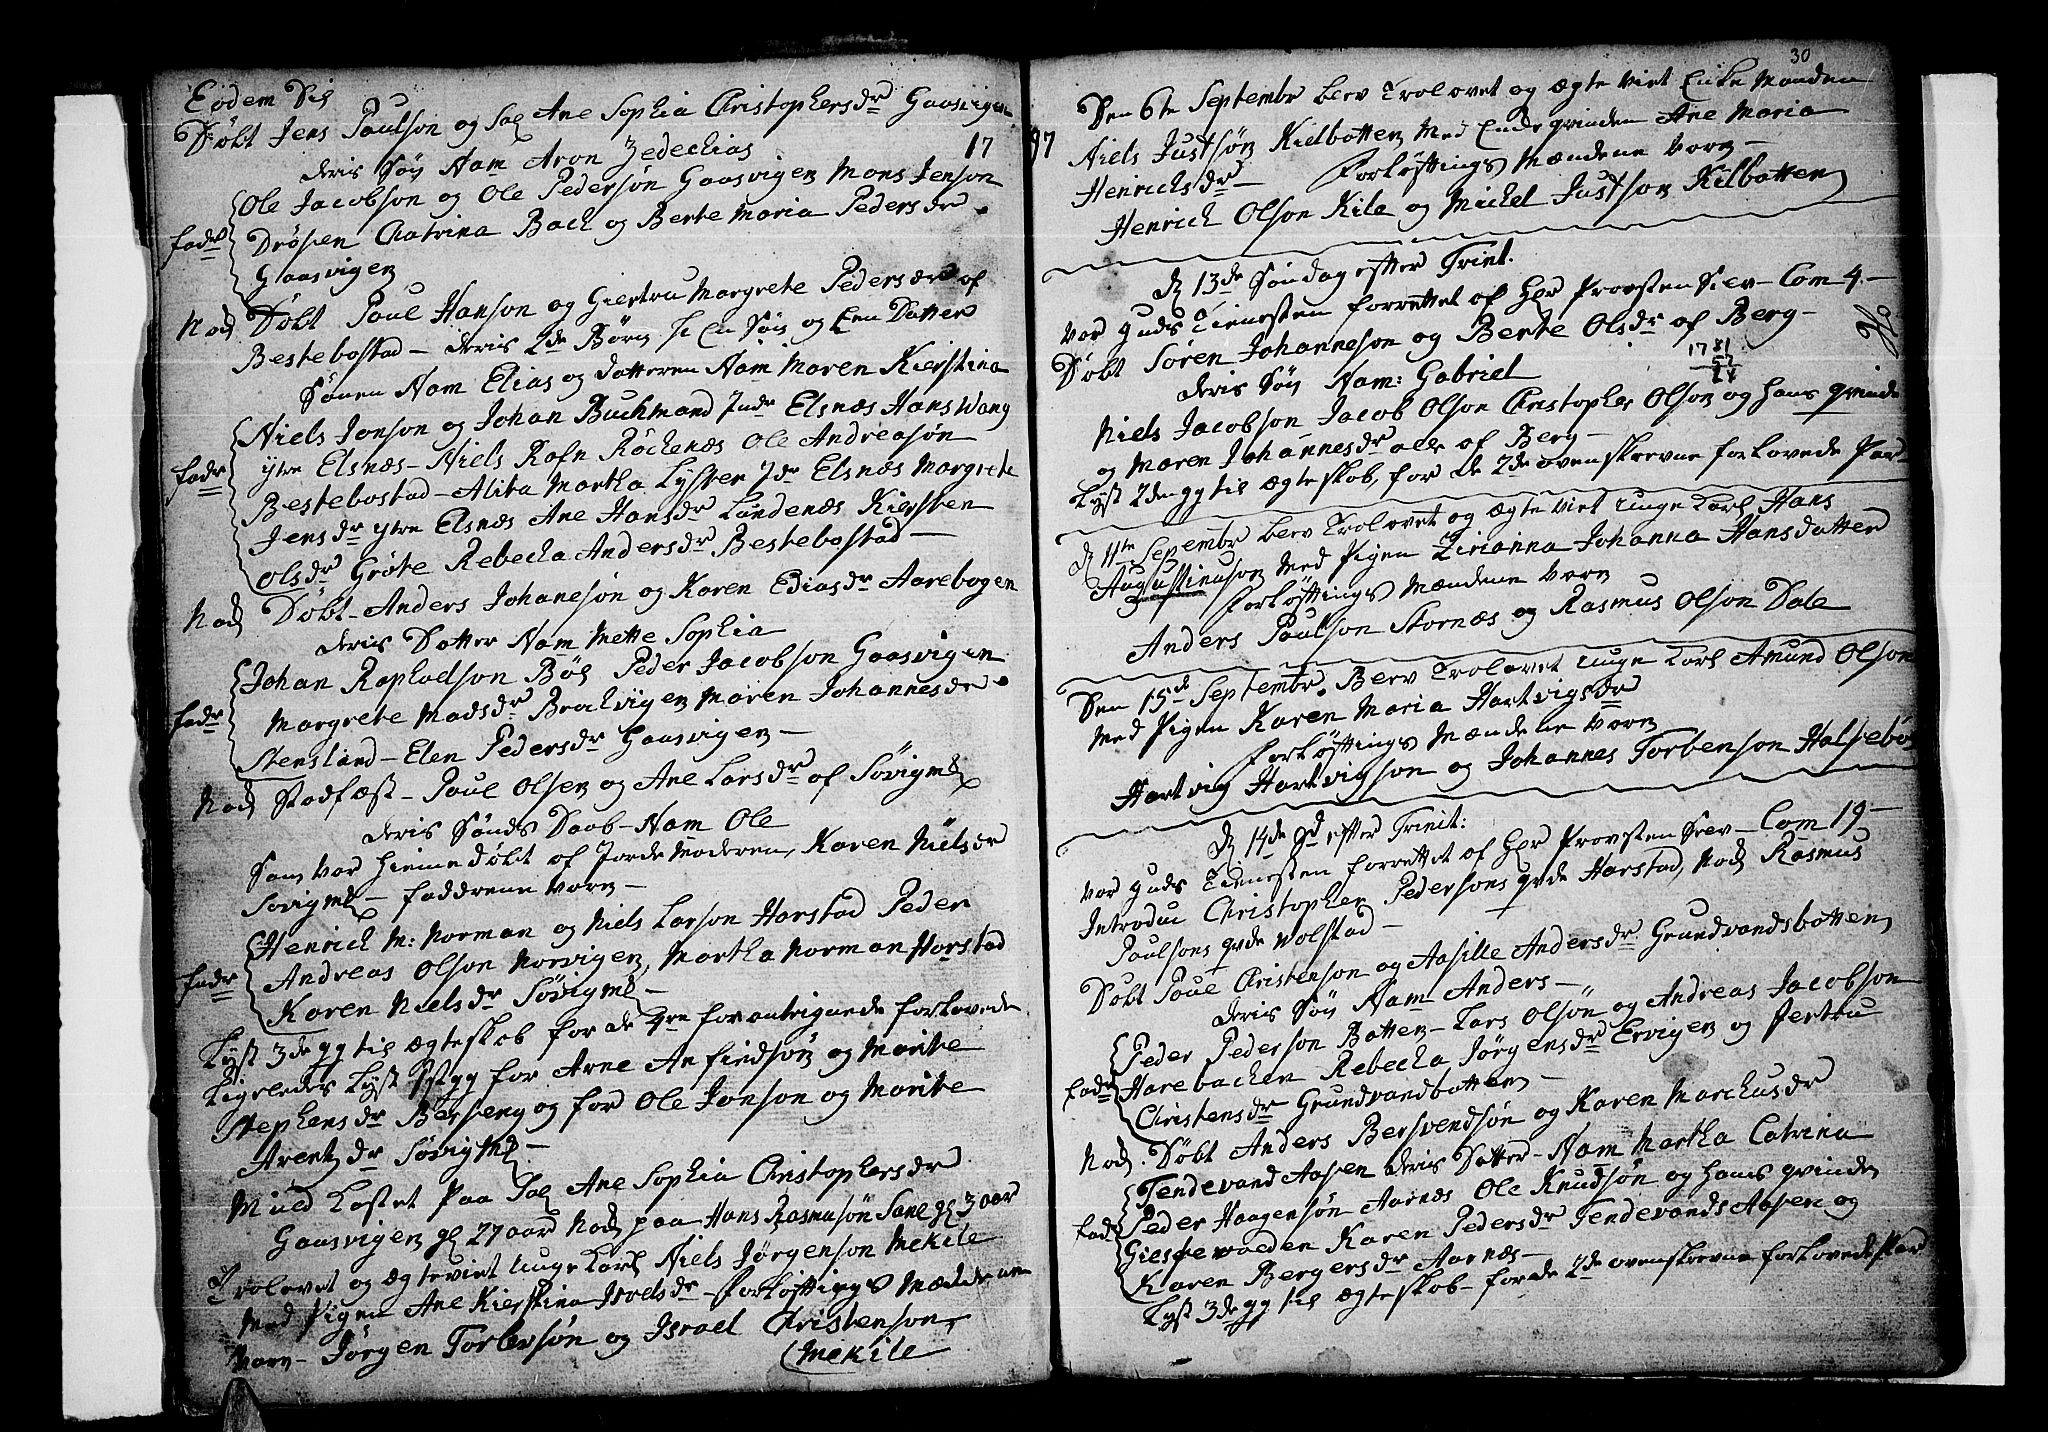 Eodem Die
Døbt Jens Paulson og Sal Ane Sophia Christophersdr Gaasvigen
deris Søn Nam Aron Zedechias 17
Ole Jacobson og Ole Pedersøn Gaasvigen Mons Jenson
fadr Drøsen Chatrina Bach og Berte Maria Pedersdr
Gaasvigen
Nok Døbt Poul Hanson og Giertru Margrete Pedersdr af
Bestebostad - deris 2de Børn En Søn og Een Datter
Sønen Nam Elias og datteren Nam Maren Kierstina
Niels Jonson og Johan Buchmand Indr Elsnæs Hans Wang
fadr ytre Elsnæs - Niels Rafn Røckenæs Ole Andreasøn
Bestebostad - Alita Martha Lyster Idr Elsnæs Margrete
Jensdr ytre Elsnæs Ane Hansdr Lundenæs Kiersten
Olsdr Grøte Rebecka Andersdr Bestebostad -
Nok Døbt - Anders Johanesøn og Karen Eliasdr Aarebogen
deris Datter Nam Mette Sophia
Johan Raphaelson Bøe Peder Jacobson Gaasvigen
fadr Margrete Madsdr Brochvigen Maren Johannesdr
Stensland - Elen Pedersdr Gaasvigen -
Nok Stadfæst - Poul Olsen og Ane Larsdr af Søvigm
deris Sønds Daab - Nam Ole
Som Var hieme døbt af Jorde Moderen, Karen Nielsdr
Søvigm - faddrene Vare -
Henrich M: Norman og Niels Larson Harstad Peder
fadr Andreas Olson Norvigen, Martha Norman Harstad
Karen Nielsdr Søvigm -
Lyst 3de gg til ægteskab for de forantegnede forlovede
Ligeledes Lyst 1st gg for Arne Anfindsøn og Marite
Stephensdr Berseng og for Ole Jonson og Marite
Arentzdr Søvigm -
Muld Kastet Paa Sal Ane Sophia Christophersdr
Gaasvigen gl 27 aar Nok paa Hans Rasmusøn Sane gl 3 aar
Trolovet og Ægteviet Unge Karl Niels Jørgenson Mekile
Med Pigen Ane Kierstina Isralsdr - Forløftings Mændene
Vare - Jørgen Torbersøn og Israel Christenson
Mekile
30
97
Den 6te Septembr blev Trolovet og ægte viet Enke Manden
Niels Justsøn Kielbotten Med Ende qvinden Ane Maria
Henrichsdr - Forløftings Mændene Vare -
Henrich Olson Kile og Michel Justson Kilbotten
D 13de Søndag efter Trint.
Var Guds Tienesten forrettet af Hr Provsten Siev - Com 4 -
Døbt Søren Johanneson og Berte Olsdr af Berg -
deris Søn Nam: Gabriel
1781
57
24
Niels Jacobson Jacob Olson Christopher Olson og hans qvinde
og Maren Johannesdr alle af Berg -
Lyst 2den gg til ægteskab, for de 2de ovenskrevne forlovede Par
D 11te Septembr blev Trolovet og ægteviet unge Karl Hans
Augustinuson Med Pigen Zirianna Johanna Hansdatter
Forløftings Mændene Vare
Anders Paulson Stornæs og Rasmus Olson Dale
Den 15de Septembr. Blev Trolovet unge Karl Amund Olson
Med Pigen Karen Maria Hartvigsdr
forløftings Mændene Vare
Hartvig Hartvigson og Johannes Torbenson Halsebøe
D 14de Sd efter Trinit:
Var Guds Tienesten forrettet af Hr Provsten Siev - Com 19 -
Introduc Christopher Pedersons qvde Harstad, Nok Rasmus
Paulsons qvde Volstad -
Døbt Poul Christenson og Aasille Andersdr Grundvandsbotten
deris Søn Nam Anders -
Peder Pederson Botten - Lars Olsøn og Andreas Jacobson
fadr Harebacken Rebecka Jørgensdr Ervigen og Jertru
Christensdr Grundvandbotten -
Nok. Døbt Anders Bersvendsøn og Karen Marchusdr
Tendevand Aasen deris Datter - Nam Martha Catrina
Peder Haagensøn Aarnæs Ole Knudsøn og hans qvinde
fadr Karen Pedersdr TendevandsAasen og
Karen Bergersdr Aarnæs -
Lyst 3de gg til ægteskab - for de 2de ovenskrevne forlovede Par